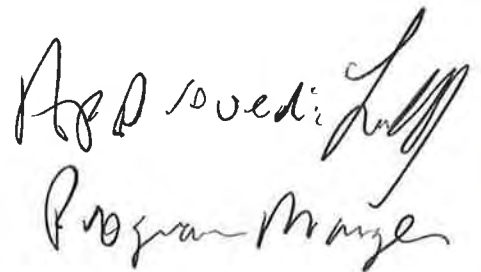 Approved:
Program Manager